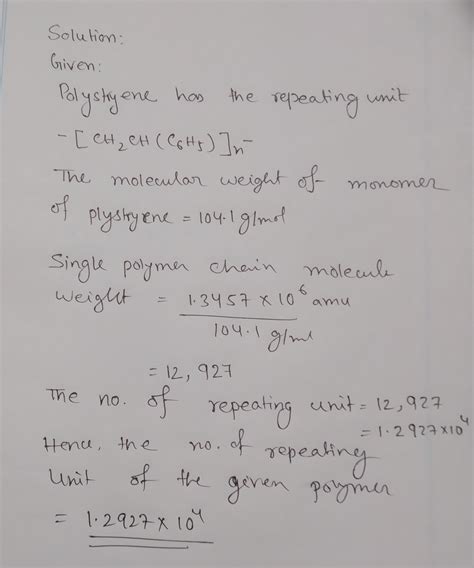 Solution:
Given:
Polystryene has the repeating unit
-[CH₂CH(C₆H₅)]n-
The molecular weight of monomer
of plystryrene = 104.1 g/mol
Single polymer chain molecule
weight = 1.3457 × 10⁶ amu
104.1 g/ml
= 12,927
The no. of repeating unit = 12,927
= 1.2927×10⁴
Hence, the no. of repealing
Unit of the geven polymer
= 1.2927 × 10⁴